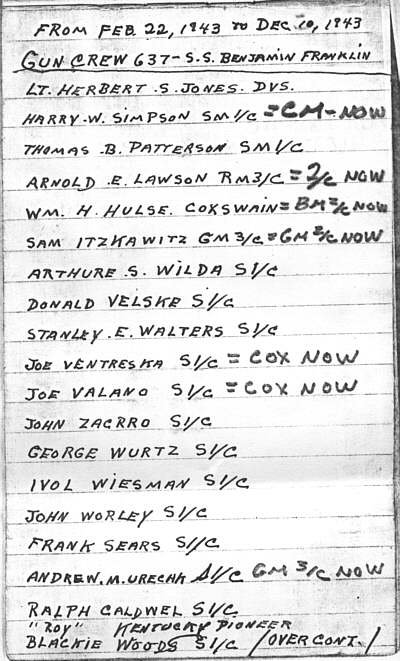 FROM FEB. 22, 1943 TO DEC. 10, 1943
GUN CREW 637 - S.S. BENJAMIN FRANKLIN
LT. HERBERT .S. JONES. DVS.
HARRY .W. SIMPSON SM 1/C = CM - NOW
THOMAS .B. PATTERSON SM 1/C
ARNOLD .E. LAWSON RM 3/C = 2/C NOW
WM. H. HULSE. COXSWAIN = BM 2/C NOW
SAM ITZKAWITZ GM 3/C = GM 2/C NOW
ARTHURE .S. WILDA S1/C
DONALD VELSKE S1/C
STANLEY .E. WALTERS S1/C
JOE VENTRESKA S1/C = COX NOW
JOE VALANO S1/C = COX NOW
JOHN ZACRRO S1/C
GEORGE WURTZ S1/C
IVOL WIESMAN S1/C
JOHN WORLEY S1/C
FRANK SEARS S1/C
ANDREW. M. URECHK S1/C GM 3/C NOW
RALPH CALDWEL S1/C.
"ROY" KENTUCKY PIONEER
BLACKIE WOODS S1/C (OVER CONT.)